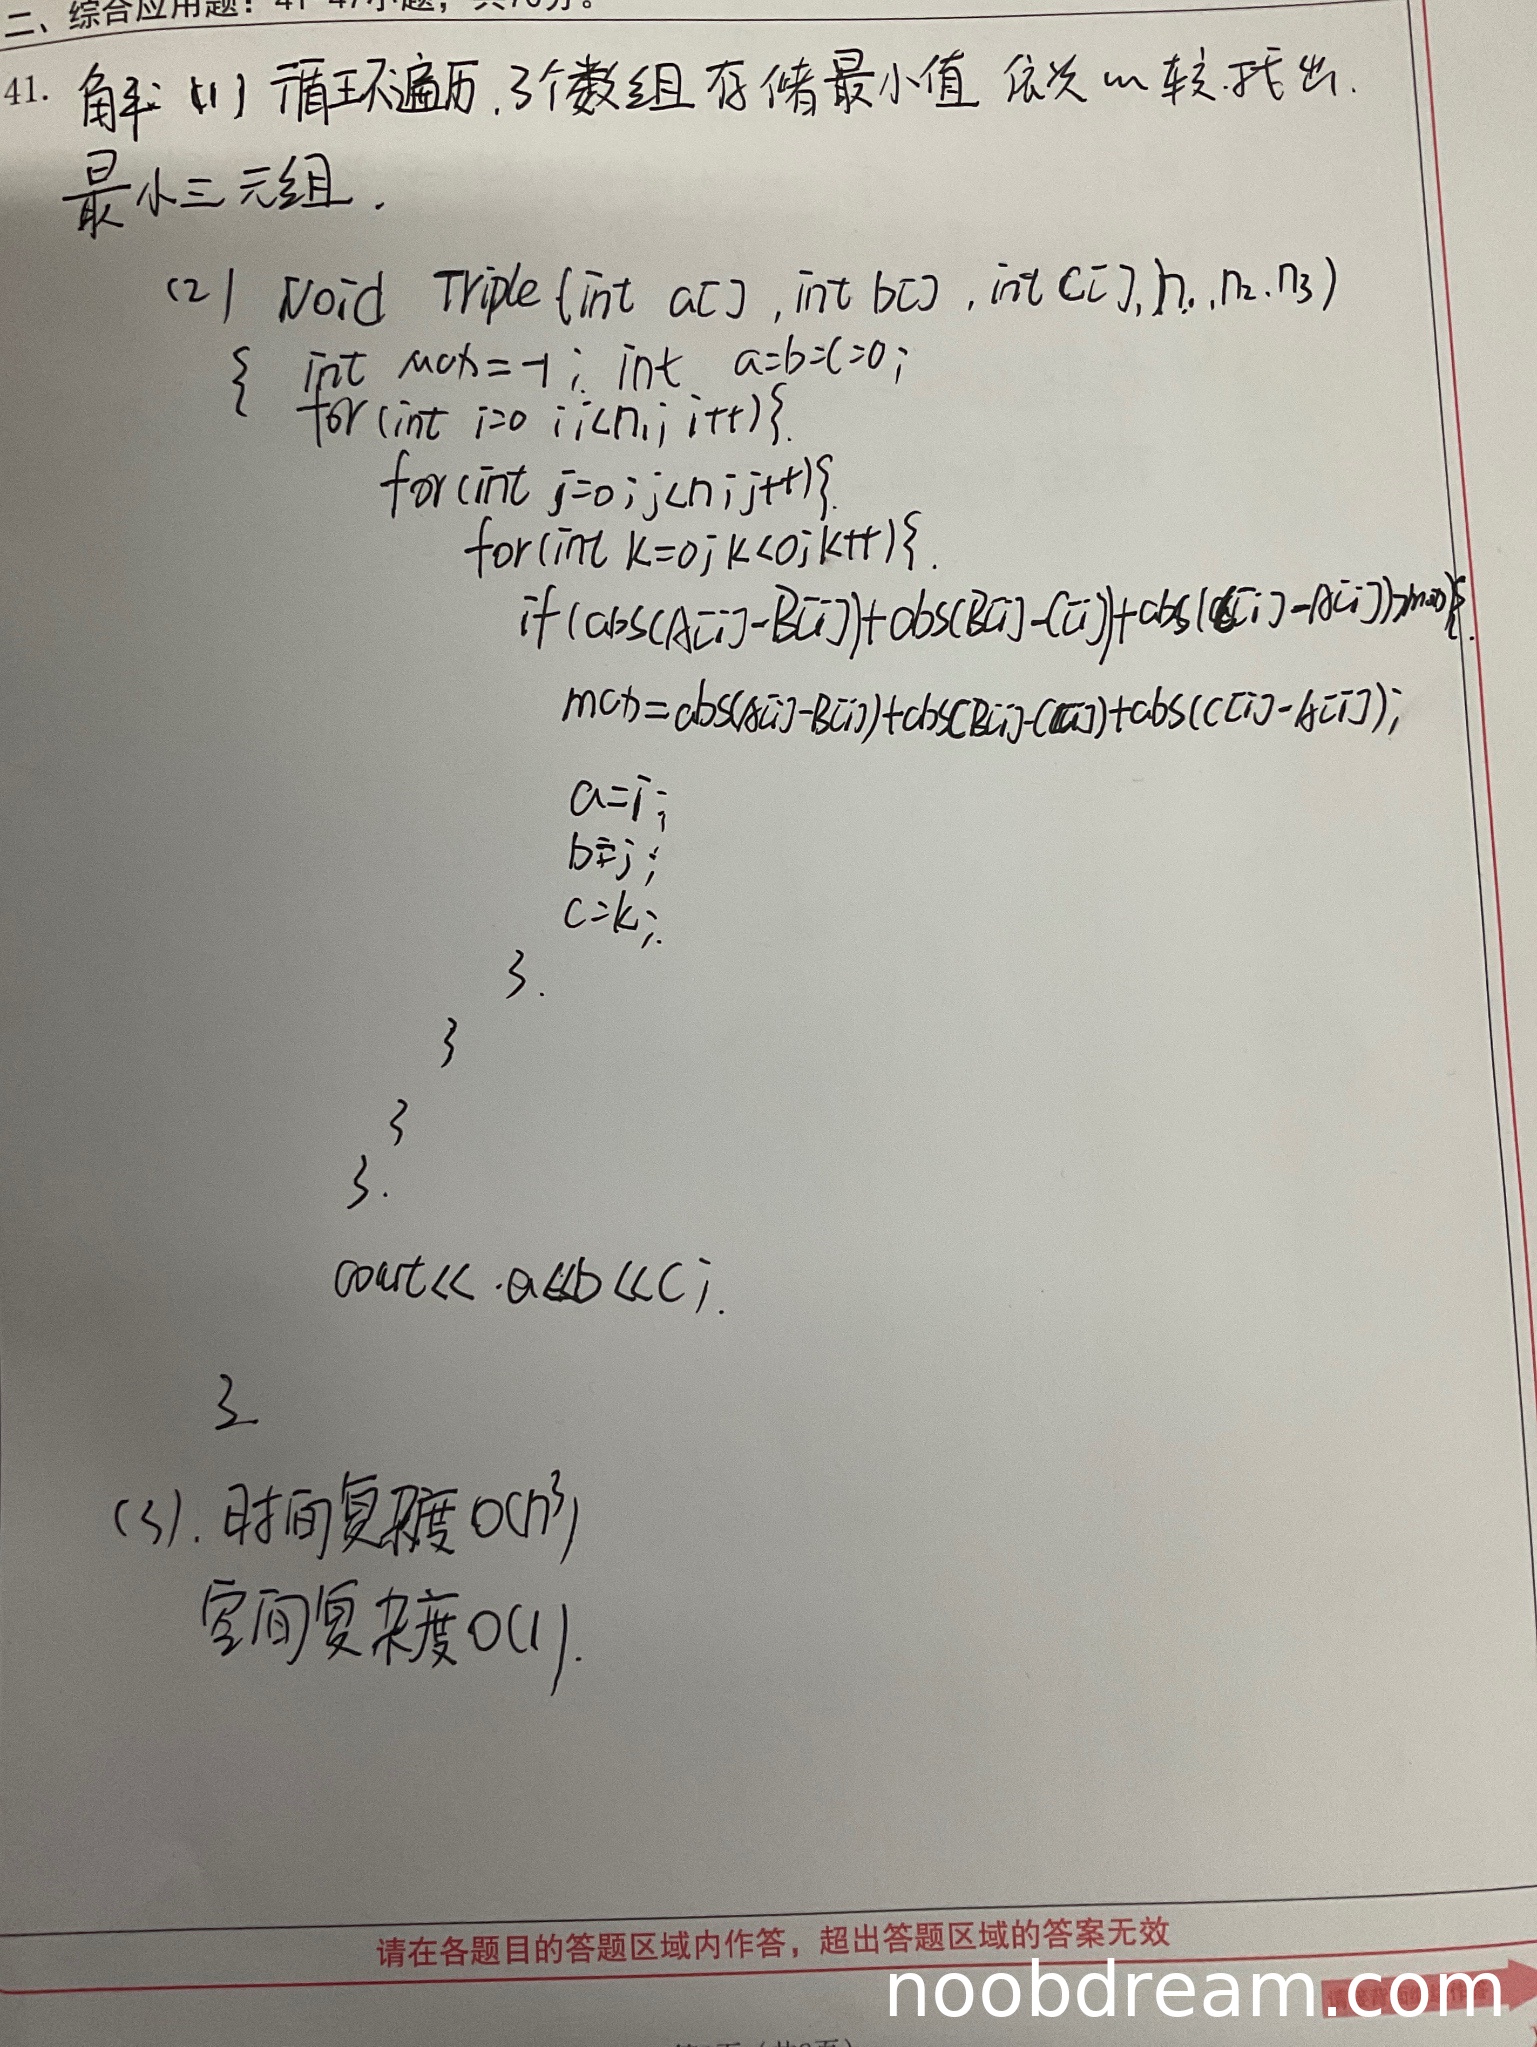 二、综合应用题：41~47小题，共70分。
41. 解: (1) 循环遍历.3个数组存储最小值 依次比较.找出.
最小三元组.
(2) Void Triple(int a[], int b[], int C[], n1, n2, n3)
{ int max=-1; int a=b=c=0;
for(int i=0;i<n1;i++){
for(int j=0;j<n;j++){
for(int k=0;k<0;k++){
if(abs(A[i]-B[i])+abs(B[i]-C[i])+abs(C[i]-A[i])>max){
max=abs(A[i]-B[i])+abs(B[i]-C[i])+abs(C[i]-A[i]);
a=i;
b=j;
c=k;
}
}
}
}
cout<<a<<b<<c;
}
(3). 时间复杂度O(n³)
空间复杂度O(1).
请在各题目的答题区域内作答，超出答题区域的答案无效
noobdream.com